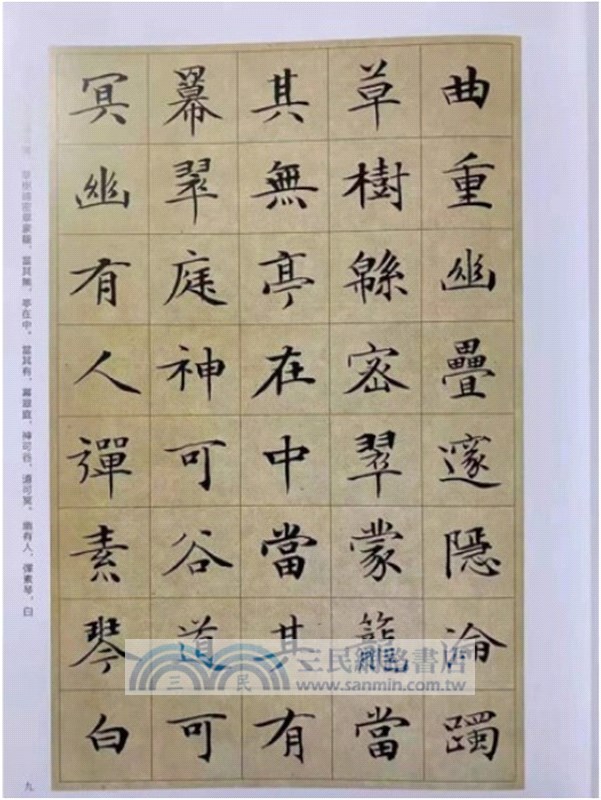 曲重幽疊邃隱淪躅
草樹緜密翠蒙籠當
其無亭在中當其有
羃翠庭神可谷道可
冥幽有人彈素琴白
草樹綿密翠蒙籠，當其無，亭在中，當其有，羃翠庭，神可谷，道可冥，幽有人，彈素琴，白
九
三民
三民網路書店
www.sanmin.com.tw